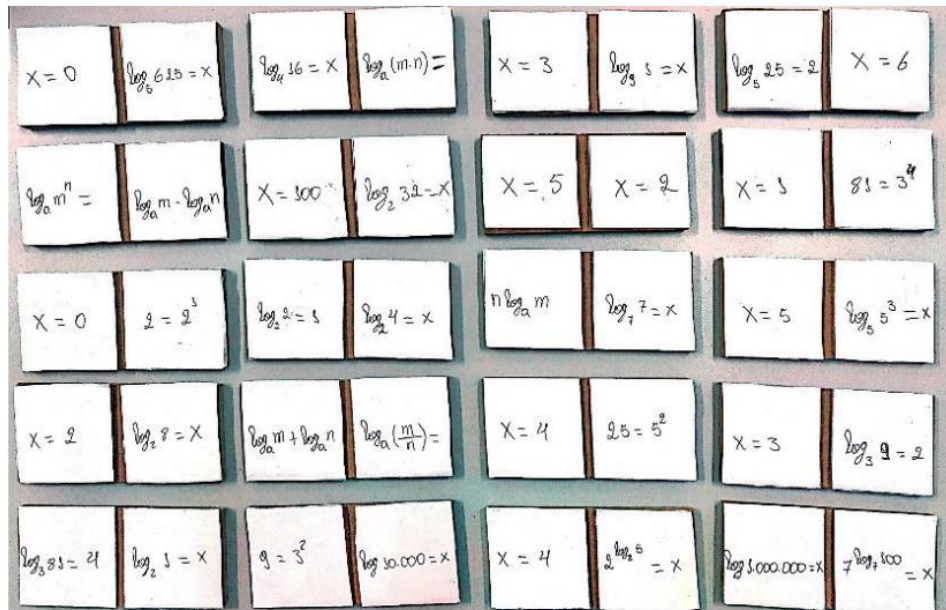 X = 0
log₅ 625 = x
log₄ 16 = x
logₐ (m.n) =
X = 3
log₉ 1 = x
log₅ 25 = 2
X = 6
logₐ mⁿ =
logₐ m - logₐ n
X = 100
log₂ 32 = x
X = 5
X = 2
X = 1
81 = 3⁴
X = 0
2 = 2¹
log₂ 2 = 1
log₂ 4 = x
n logₐ m
log₇ 7 = x
X = 5
log₅ 5³ = x
X = 2
log₂ 8 = X
logₐ m + logₐ n
logₐ (m/n) =
X = 4
25 = 5²
X = 3
log₃ 9 = 2
log₃ 81 = 4
log₂ 1 = x
9 = 3²
log 10.000 = x
X = 4
2^log₂ 5 = x
log 1.000.000 = x
7^log₇ 100 = x